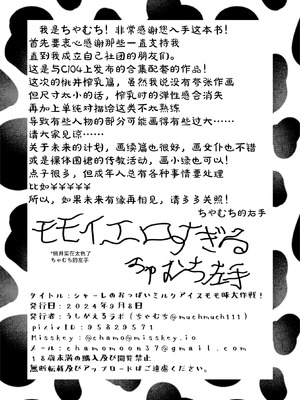 我是ちゃむち！非常感谢您入手这本书！
首先要衷心感谢那些一直支持我
直到我成立自己社团的朋友们。
这是与C104上发布的合集配套的作品！
这次的桃井榨乳篇，虽然我说没有夸张作画
但尺寸太小的话，榨乳时的弹性感会消失
再加上单纯对描绘这类不太熟练
导致有些人物的部分可能画得有些过大……
请大家见谅……
关于未来的计划，画续篇也很好，画女仆也不错
或是裸体围裙的传教活动，画小绿也可以！
点子很多，但成年人总有各种事情要处理
比如¥¥¥¥¥
所以，如果未来有缘再相见，请多多关照！
ちゃむちの右手
モモイエロすぎる
*桃井实在太色了
ちゃむちの左手
ちゃむち左手
タイトル：シャーレのおっぱいミルクアイスモモ味大作戦！
発行日：2024年9月8日
発行者：うしがえるラボ（ちゃむち@muchmuch111）
pixivID：95829571
Misskey：@chamo@misskey.io
メール：chamomoon37@gmail.com
18歳未満の購入及び閲覧禁止
無断転載及びアップロードはご遠慮ください。